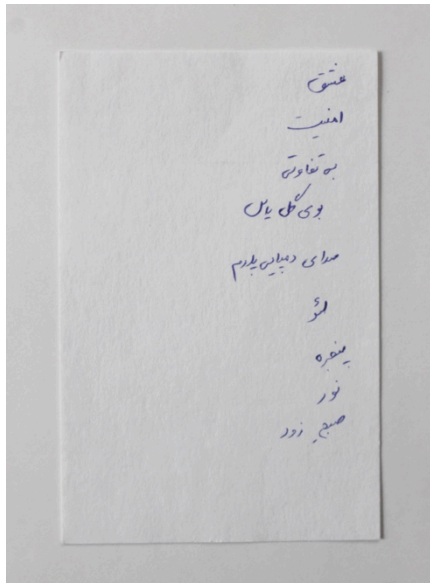 عشق
امنیت
بی تفاوتی
بوی گل یاس
صدای دمپایی پدرم
لئو
پنجره
نور
صبح زود